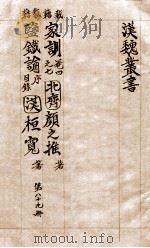 漢魏叢書
家訓 卷四之七 北齊顏之推 著
鹽鐵論 序目錄 漢桓寬 著
第八十九册